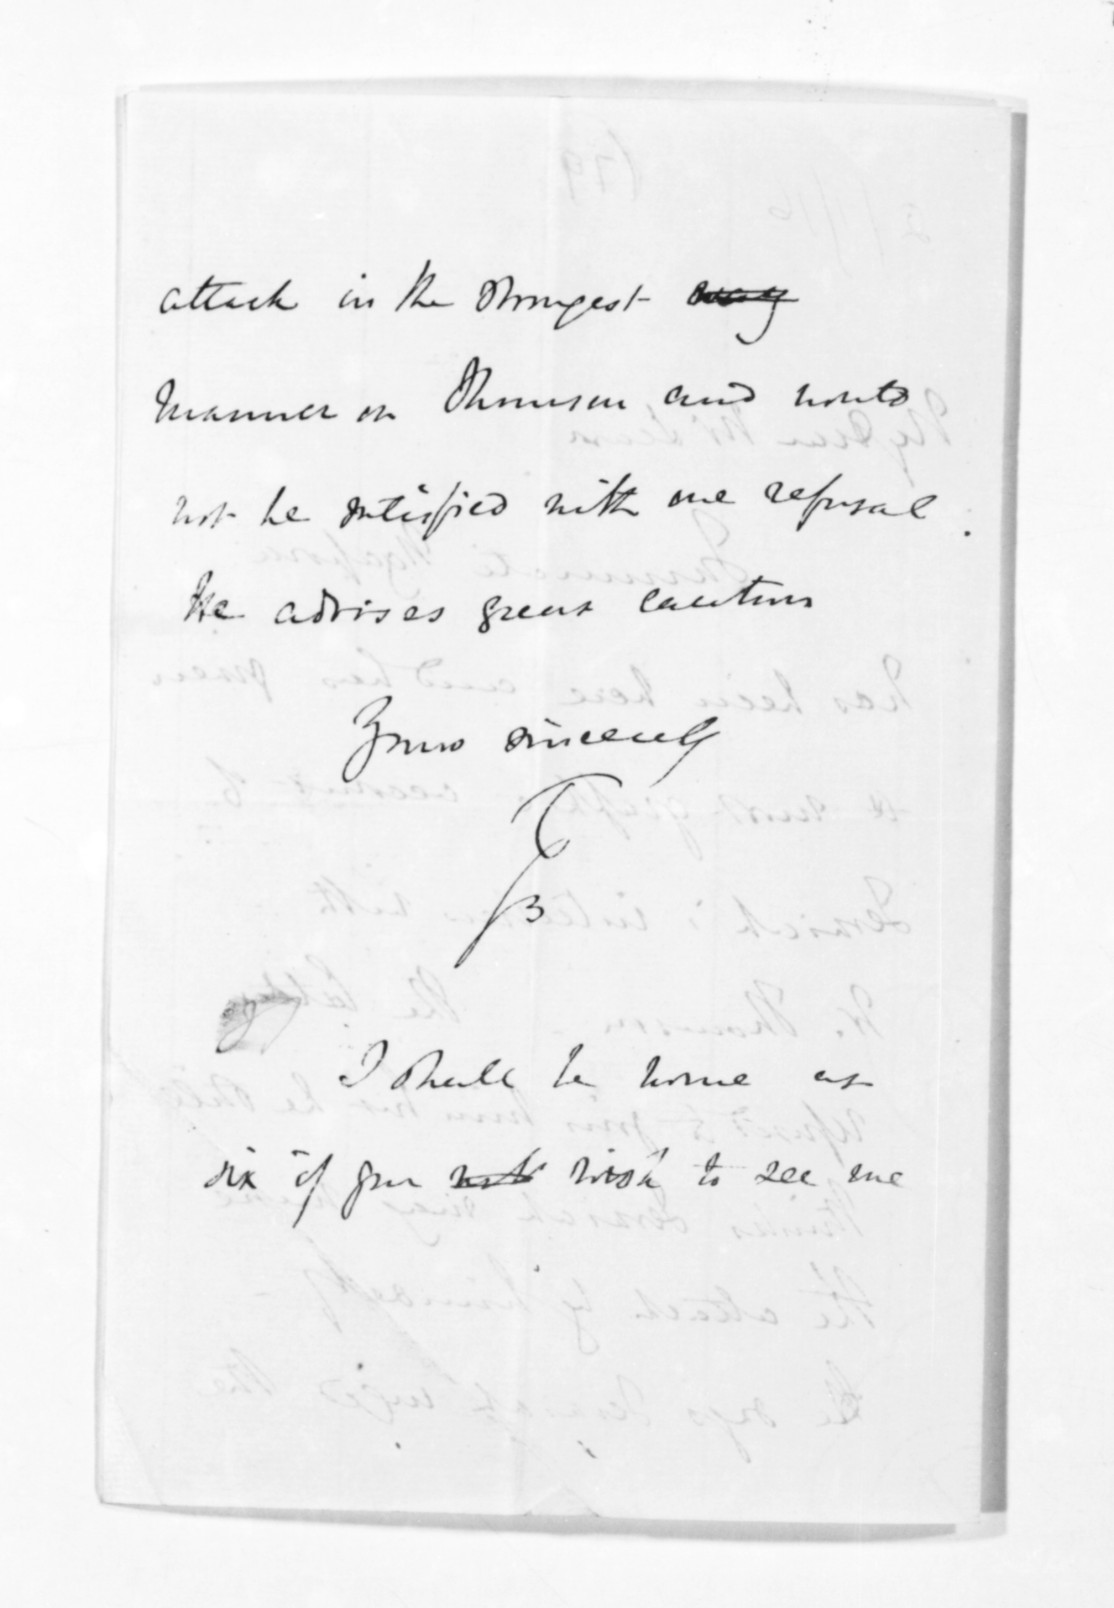 attack in the strongest way
manner on Thomson and would
not be satisfied with one refusal.
He advises great caution
Yours sincerely
I shall be home at
six if you wish to see me